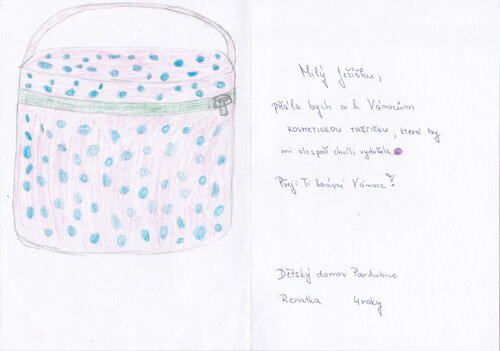 Milý Ježíšku,
přála bych si k Vánocům
KOSMETICKOU TAŠTIČKU, která by
mi alespoň chvíli vydržela
Přeji Ti krásné Vánoce!
Dětský domov Pardubice
Renatka 4 roky